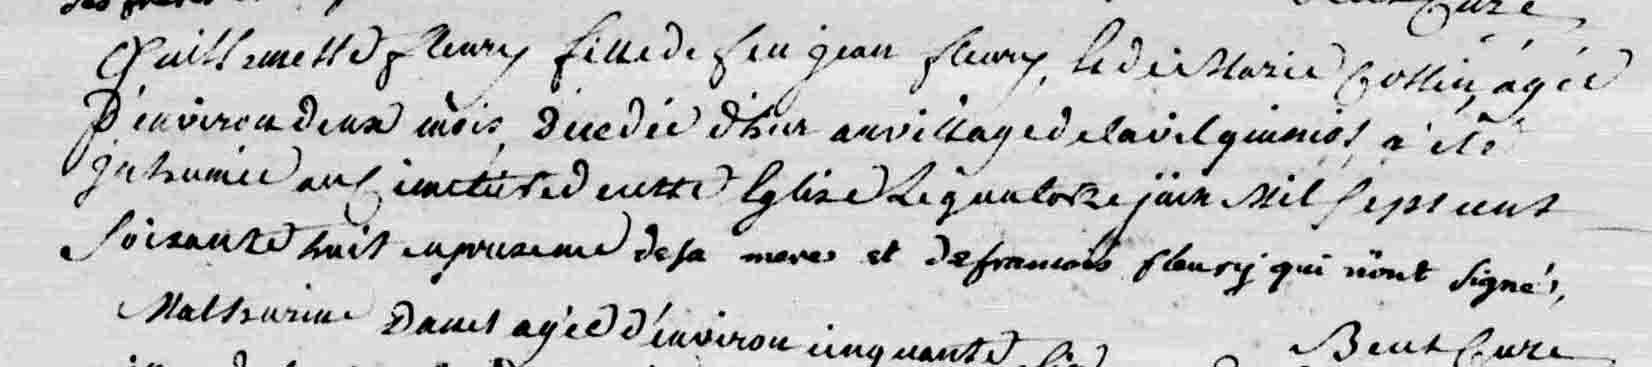 Curé
Guillemette fleury fille de feu jean fleury, & de Marie Collin, agée
D'environ deux mois, Décédée d'hier au village de la vil guiniot, a été
jnhumée au Cimetière de cette Eglise Le quatorze juin Mil sept cent
soixante huit en presence de sa mere et de francois fleury qui n'ont signé,
Mathurine Danet agée d'environ cinquante six
Curé